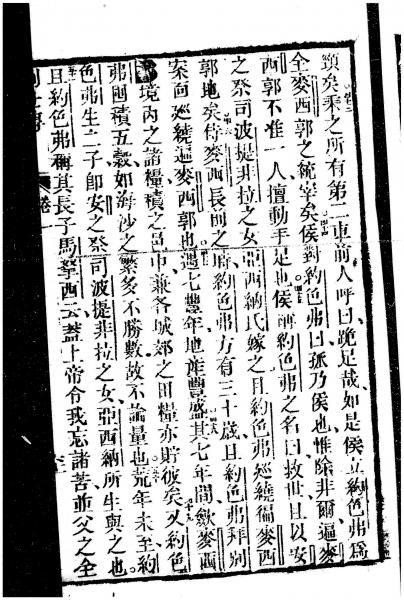 頸矣乘之所有第二車前人呼曰跪足哉如是侯立約色弗為
全麥西郭之統宰矣侯對約色弗曰孤乃侯也惟除非爾遍麥
西郭不准一人擅動手足也侯稱約色弗之名曰救世且以安
之祭司波提非拉之女亞西納氏嫁之且約色弗巡繞徧麥西
郭地矣侍麥西長前之時約色弗方有三十歲且約色弗拜別
案面巡繞遍麥西郭也遇七豐年地產豐盛其七年間斂麥西
境內之諸糧積之邑中兼各城郊之田糧亦貯彼矣又約色
弗囤積五穀如海沙之繁多不勝數故不論量也荒年未至約
色弗生二子即安之祭司波提非拉之女亞西納所生與之也
且約色弗稱其長子馬拏西云蓋上帝令我忘諸苦並父之全
卷一